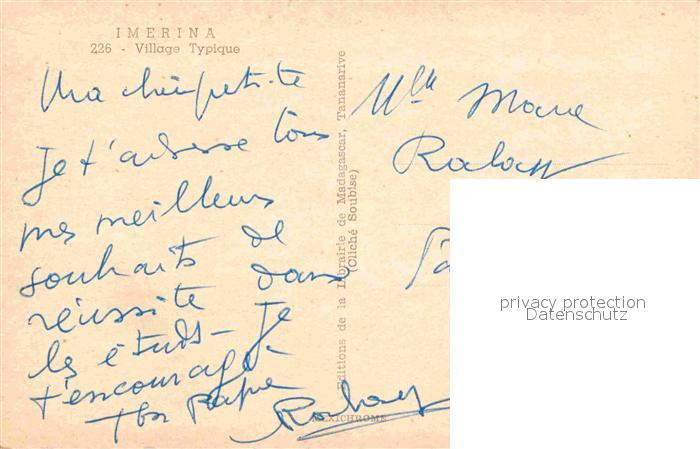 IMERINA
226 - Village Typique
Ma chère petite
Je t'adresse tous
mes meilleurs
souhaits de
réussite dans
les études - Je
t'encourage.
Ton Papa
Editions de la Librairie de Madagascar, Tananarive
(Cliché Soubise)
MEXICHROME
Mlle
privacy protection
Datenschutz